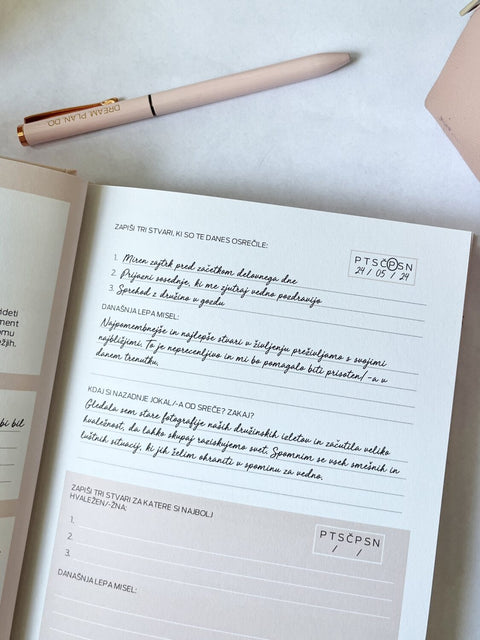 DREAM. PLAN. DO.
ZAPIŠI TRI STVARI, KI SO TE DANES OSREČILE:
PTSČPSN
24 / 05 / 24
1. Miren zajtrk pred začetkom delovnega dne
2. Prijazni sosednje, ki me zjutraj vedno pozdravijo
3. Sprehod z družino v gozdu
DANAŠNJA LEPA MISEL:
Najpomembnejše in najlepše stvari v življenju preživljamo s svojimi
najbližjimi. To je neprecenljivo in mi bo pomagalo biti prisoten/-a v
danem trenutku.
KDAJ SI NAZADNJE JOKAL/-A OD SREČE? ZAKAJ?
Gledala sem stare fotografije naših družinskih izletov in začutila veliko
hvaležnost, da lahko skupaj raziskujemo svet. Spomnim se vseh smešnih in
luštnih situacij, ki jih želim ohraniti v spominu za vedno.
ZAPIŠI TRI STVARI ZA KATERE SI NAJBOLJ
HVALEŽEN/-ŽNA:
PTSČPSN
/ /
1.
2.
3.
DANAŠNJA LEPA MISEL:
bi bil